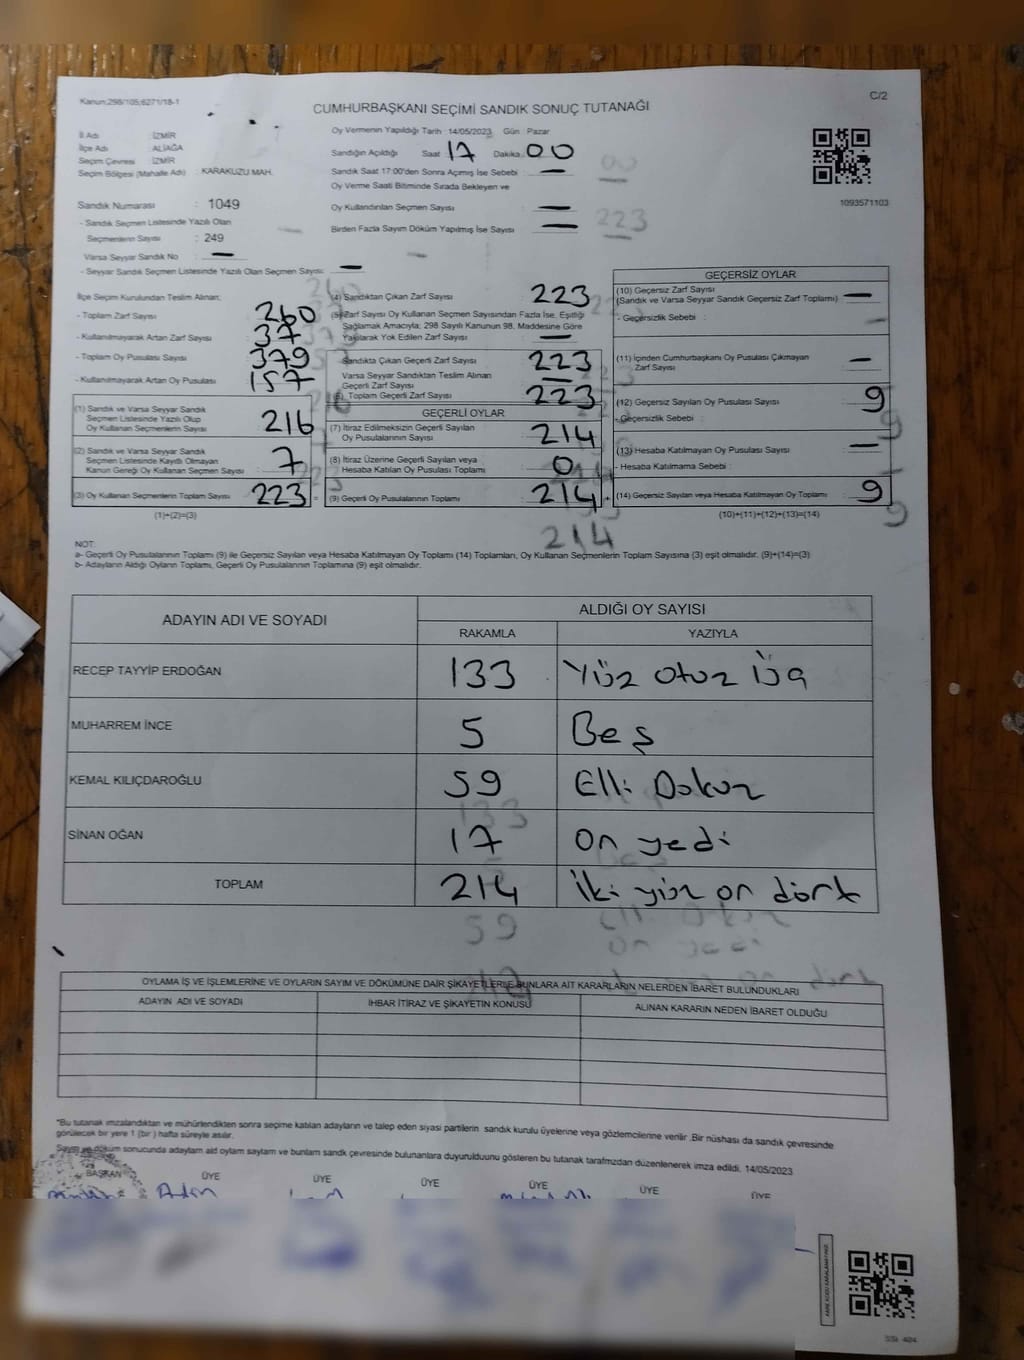 Kanun:298/105;6271/18-1
C/2
CUMHURBAŞKANI SEÇİMİ SANDIK SONUÇ TUTANAĞI
İl Adı : İZMİR
İlçe Adı : ALİAĞA
Seçim Çevresi : İZMİR
Seçim Bölgesi (Mahalle Adı) : KARAKUZU MAH.
Sandık Numarası : 1049
- Sandık Seçmen Listesinde Yazılı Olan
Seçmenlerin Sayısı : 249
Varsa Seyyar Sandık No : —
- Seyyar Sandık Seçmen Listesinde Yazılı Olan Seçmen Sayısı: —
Oy Vermenin Yapıldığı Tarih : 14/05/2023 Gün : Pazar
Sandığın Açıldığı Saat : 17 Dakika : 00
Sandık Saat 17:00'den Sonra Açımış İse Sebebi : —
Oy Verme Saati Bitiminde Sırada Bekleyen ve
Oy Kullandırılan Seçmen Sayısı : —
Birden Fazla Sayım Döküm Yapılmış İse Sayısı : —
1093571103
İlçe Seçim Kurulundan Teslim Alınan;
- Toplam Zarf Sayısı : 260
- Kullanılmayarak Artan Zarf Sayısı : 37
- Toplam Oy Pusulası Sayısı : 379
- Kullanılmayarak Artan Oy Pusulası : 157
(1) Sandık ve Varsa Seyyar Sandık
Seçmen Listesinde Yazılı Olup
Oy Kullanan Seçmenlerin Sayısı : 216
(2) Sandık ve Varsa Seyyar Sandık
Seçmen Listesinde Kayıtlı Olmayan
Kanun Gereği Oy Kullanan Seçmen Sayısı : 7
(3) Oy Kullanan Seçmenlerin Toplam Sayısı : 223
(1)+(2)=(3)
(4) Sandıktan Çıkan Zarf Sayısı : 223
(5) Zarf Sayısı Oy Kullanan Seçmen Sayısından Fazla İse, Eşitliği
Sağlamak Amacıyla; 298 Sayılı Kanunun 98. Maddesine Göre
Yakılarak Yok Edilen Zarf Sayısı : —
Sandıkta Çıkan Geçerli Zarf Sayısı : 223
Varsa Seyyar Sandıktan Teslim Alınan
Geçerli Zarf Sayısı : —
(6) Toplam Geçerli Zarf Sayısı : 223
GEÇERLİ OYLAR
(7) İtiraz Edilmeksizin Geçerli Sayılan
Oy Pusulalarının Sayısı : 214
(8) İtiraz Üzerine Geçerli Sayılan veya
Hesaba Katılan Oy Pusulası Toplamı : 0
= (9) Geçerli Oy Pusulalarının Toplamı : 214
GEÇERSİZ OYLAR
(10) Geçersiz Zarf Sayısı : —
(Sandık ve Varsa Seyyar Sandık Geçersiz Zarf Toplamı)
- Geçersizlik Sebebi :
(11) İçinden Cumhurbaşkanı Oy Pusulası Çıkmayan
Zarf Sayısı : —
(12) Geçersiz Sayılan Oy Pusulası Sayısı : 9
- Geçersizlik Sebebi :
(13) Hesaba Katılmayan Oy Pusulası Sayısı : —
- Hesaba Katılmama Sebebi :
+ (14) Geçersiz Sayılan veya Hesaba Katılmayan Oy Toplamı : 9
(10)+(11)+(12)+(13)=(14)
NOT:
a- Geçerli Oy Pusulalarının Toplamı (9) ile Geçersiz Sayılan veya Hesaba Katılmayan Oy Toplamı (14) Toplamları, Oy Kullanan Seçmenlerin Toplam Sayısına (3) eşit olmalıdır. (9)+(14)=(3)
b- Adayların Aldığı Oyların Toplamı, Geçerli Oy Pusulalarının Toplamına (9) eşit olmalıdır.
ADAYIN ADI VE SOYADI ALDIĞI OY SAYISI
RAKAMLA YAZIYLA
RECEP TAYYİP ERDOĞAN 133 Yüz otuz üç
MUHARREM İNCE 5 Beş
KEMAL KILIÇDAROĞLU 59 Elli Dokuz
SİNAN OĞAN 17 On yedi
TOPLAM 214 İki yüz on dört
OYLAMA İŞ VE İŞLEMLERİNE VE OYLARIN SAYIM VE DÖKÜMÜNE DAİR ŞİKAYETLERLE BUNLARA AİT KARARLARIN NELERDEN İBARET BULUNDUKLARI
ADAYIN ADI VE SOYADI İHBAR İTİRAZ VE ŞİKAYETİN KONUSU ALINAN KARARIN NEDEN İBARET OLDUĞU
*Bu tutanak imzalandıktan ve mühürlendikten sonra seçime katılan adayların ve talep eden siyasi partilerin sandık kurulu üyelerine veya gözlemcilerine verilir .Bir nüshası da sandık çevresinde
görülecek bir yere 1 (bir ) hafta süreyle asılır.
Sayım ve döküm sonucunda adayların ald oyların sayların ve bunların sandk çevresinde bulunanlara duyurulduunu gösteren bu tutanak tarafmzdan düzenlenerek imza edildi. 14/05/2023
BAŞKAN ÜYE ÜYE ÜYE ÜYE ÜYE ÜYE
SSİ: 404